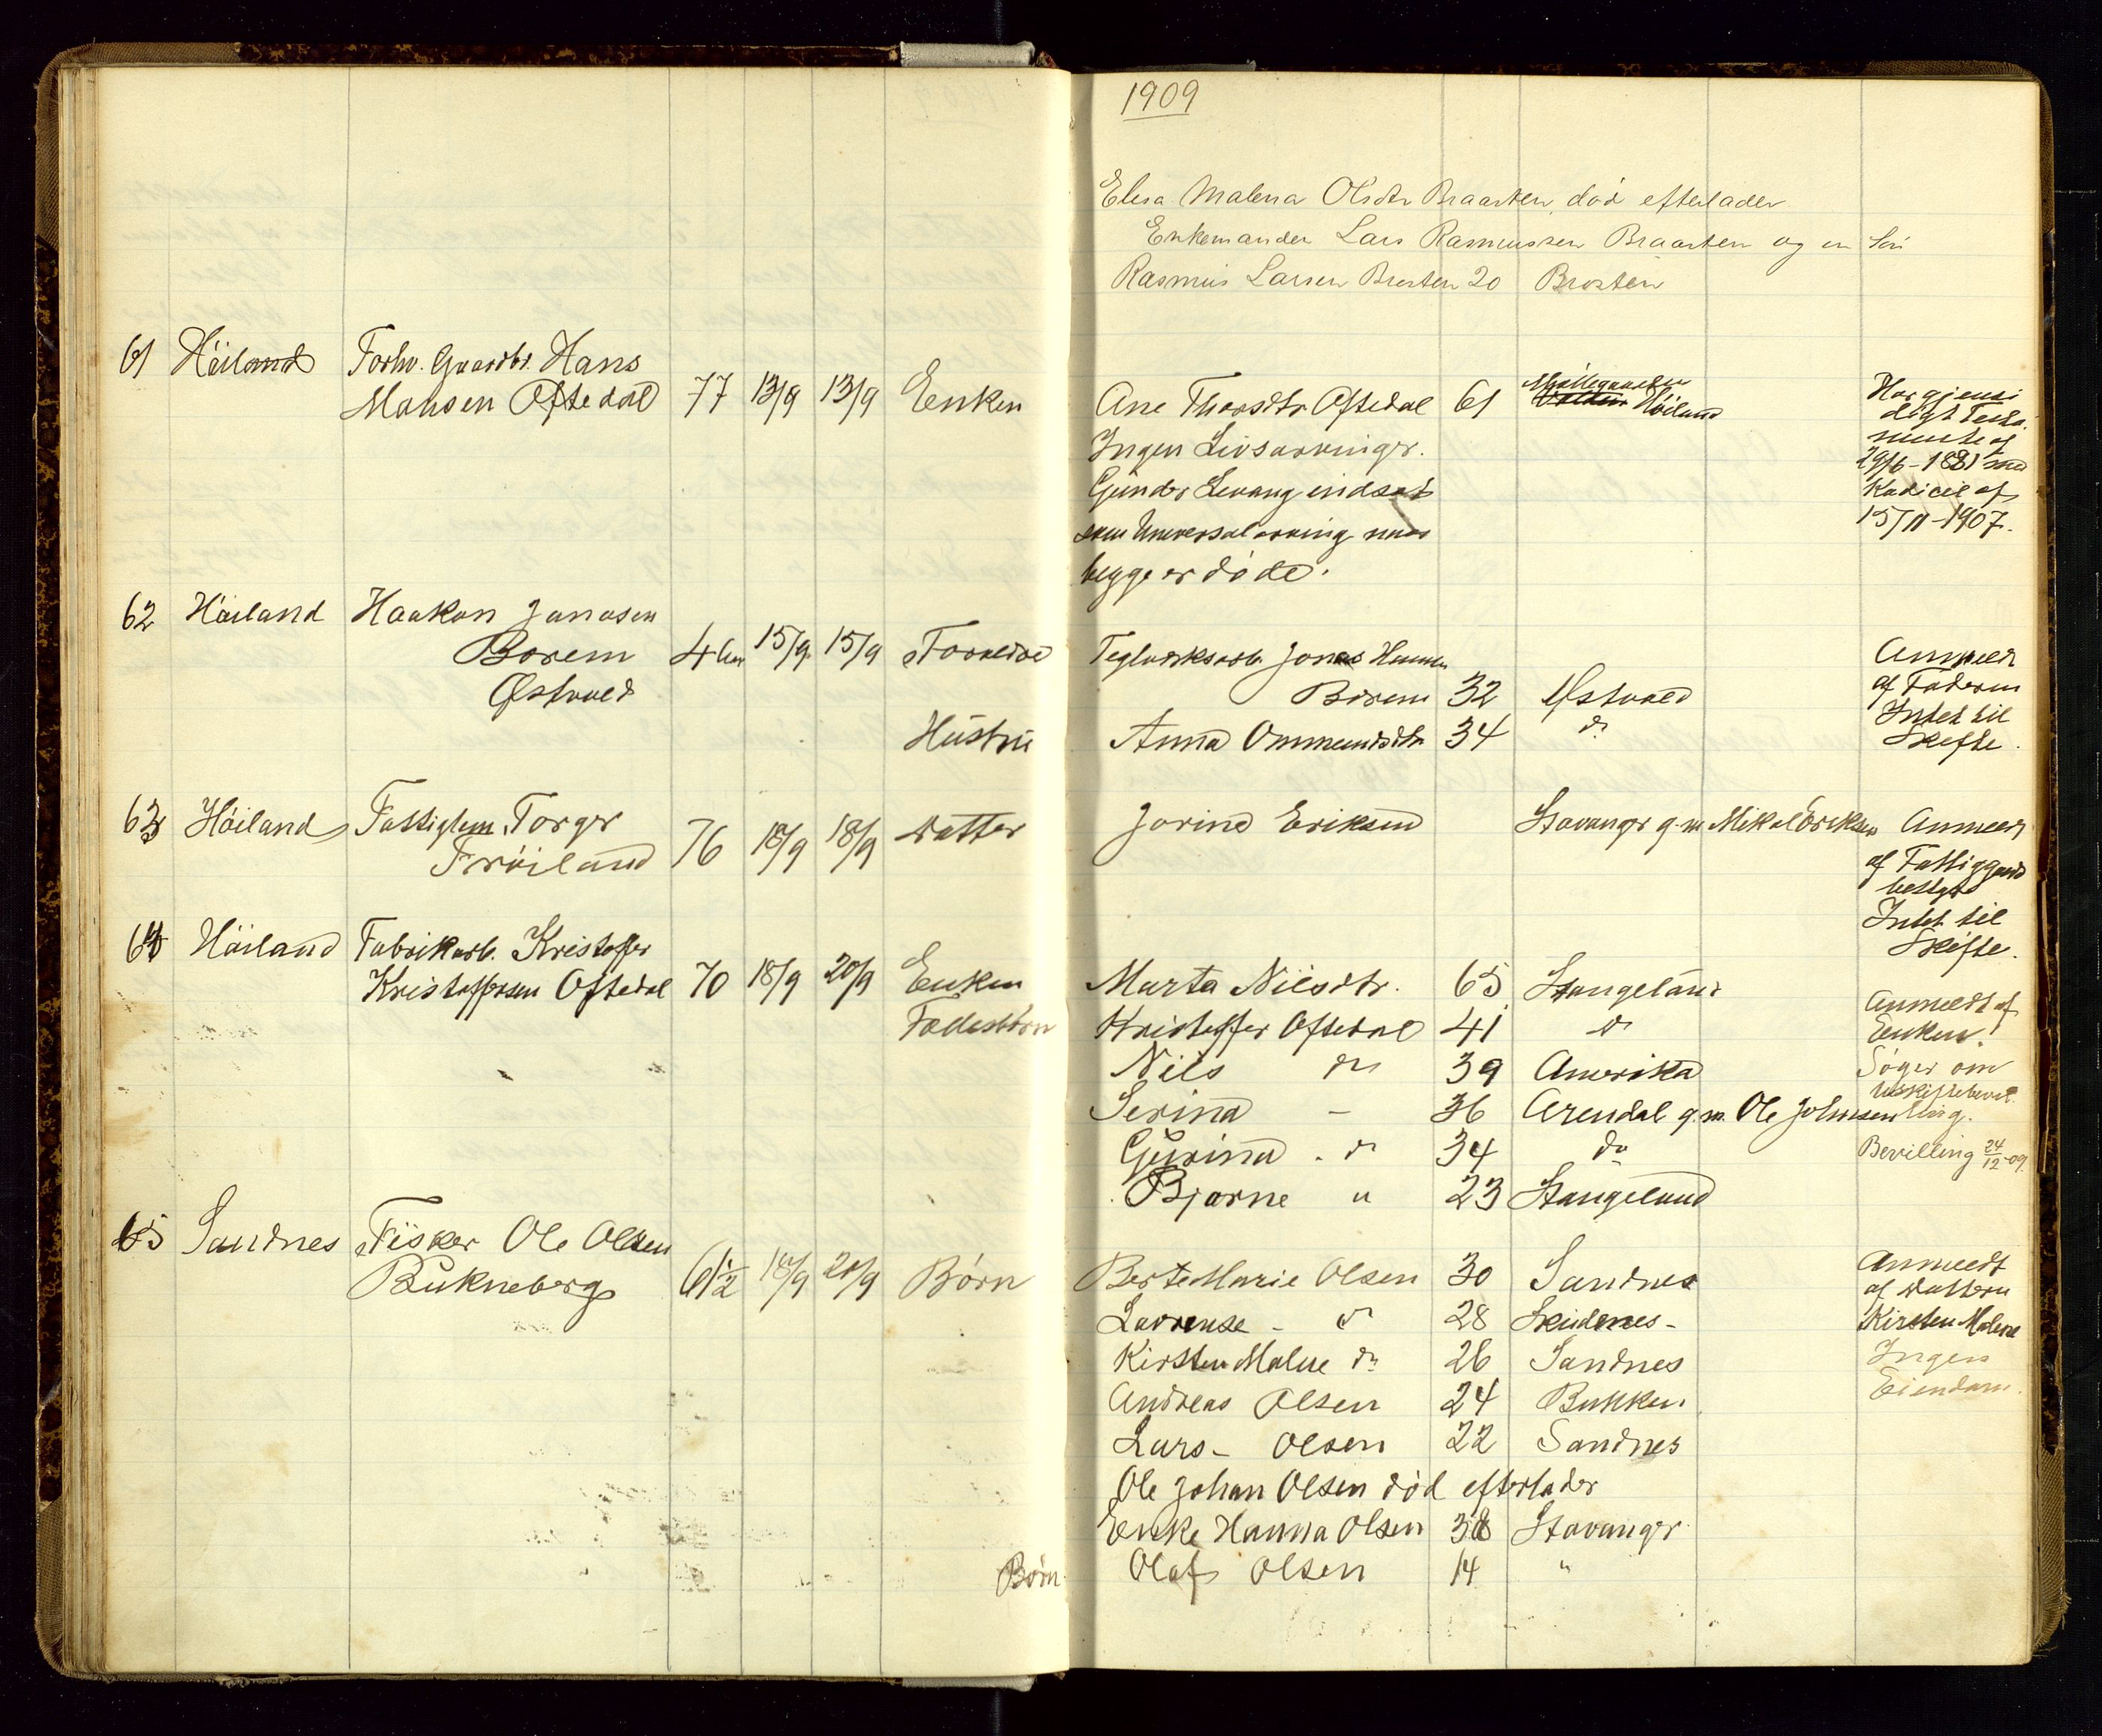 1909
Elesa Malena Olsdtr Braasten, död efterlader
Enkemanden Lars Rasmussen Braasten og en Sön
Rasmus Larsen Brosten 20 Brosten
61 Höiland Forhv. Gaardbr. Hans
Hansen Oftedal 77 13/9 13/9 Enken
Ane Thorsdtr Oftedal 61 Höiland
Ingen Livsarvinger.
Gunder Levang indsat
som Universalarving naar
begge er döde.
Har gjensi
digt Testa
mente af
29/6-1881 med
Kodicil af
15/11-1907.
62 Höiland Haakon Jonasen
Borem 4 15/9 15/9 Forældre
Østvold
Hustru
Teglverksarb. Jonas Hansen
Borem 32 Østvold
Anna Ommundsdtr 34 do
Anmeldt
af Faderen
Intet til
Skifte.
63 Höiland Fattiglem, Torger
Fröiland 76 18/9 18/9 Datter
Jorine Eriksen Stavanger g.m. Mikal Eriksen
Anmeldt
af Fattiggaards
bestyr
Intet til
Skifte.
64 Höiland Fabrikarb. Kristoffer
Kristoffersen Oftedal 70 18/9 20/9 Enken
Fællesbörn
Marta Nilsdtr. 65 Stangeland
Kristoffer Oftedal 41 do
Nils do 39 Amerika
Serina - 36 Arendal g.m. Ole Johnsen
Gurina do 34 do
Bjarne " 23 Stangeland
Anmeldt af
Enken.
Söger om
Uskiftebevil
ling.
Bevilling 24/12-09
65 Sandnes Fisker Ole Olsen
Bukneberg 61½ 18/9 20/9 Børn
Berte Marie Olsen 30 Sandnes
Lavrense - do 28 Skudenes-
Kirsten Malene do 26 Sandnes
Andreas Olsen 24 Bukken
Lars - Olsen 22 Sandnes
Ole Johan Olsen död efterlader
Enke Hanna Olsen 38 Stavanger
Børn Olaf Olsen 14 "
Anmeldt
af Datteren
Kirsten Malene
Ingen
Eiendom.